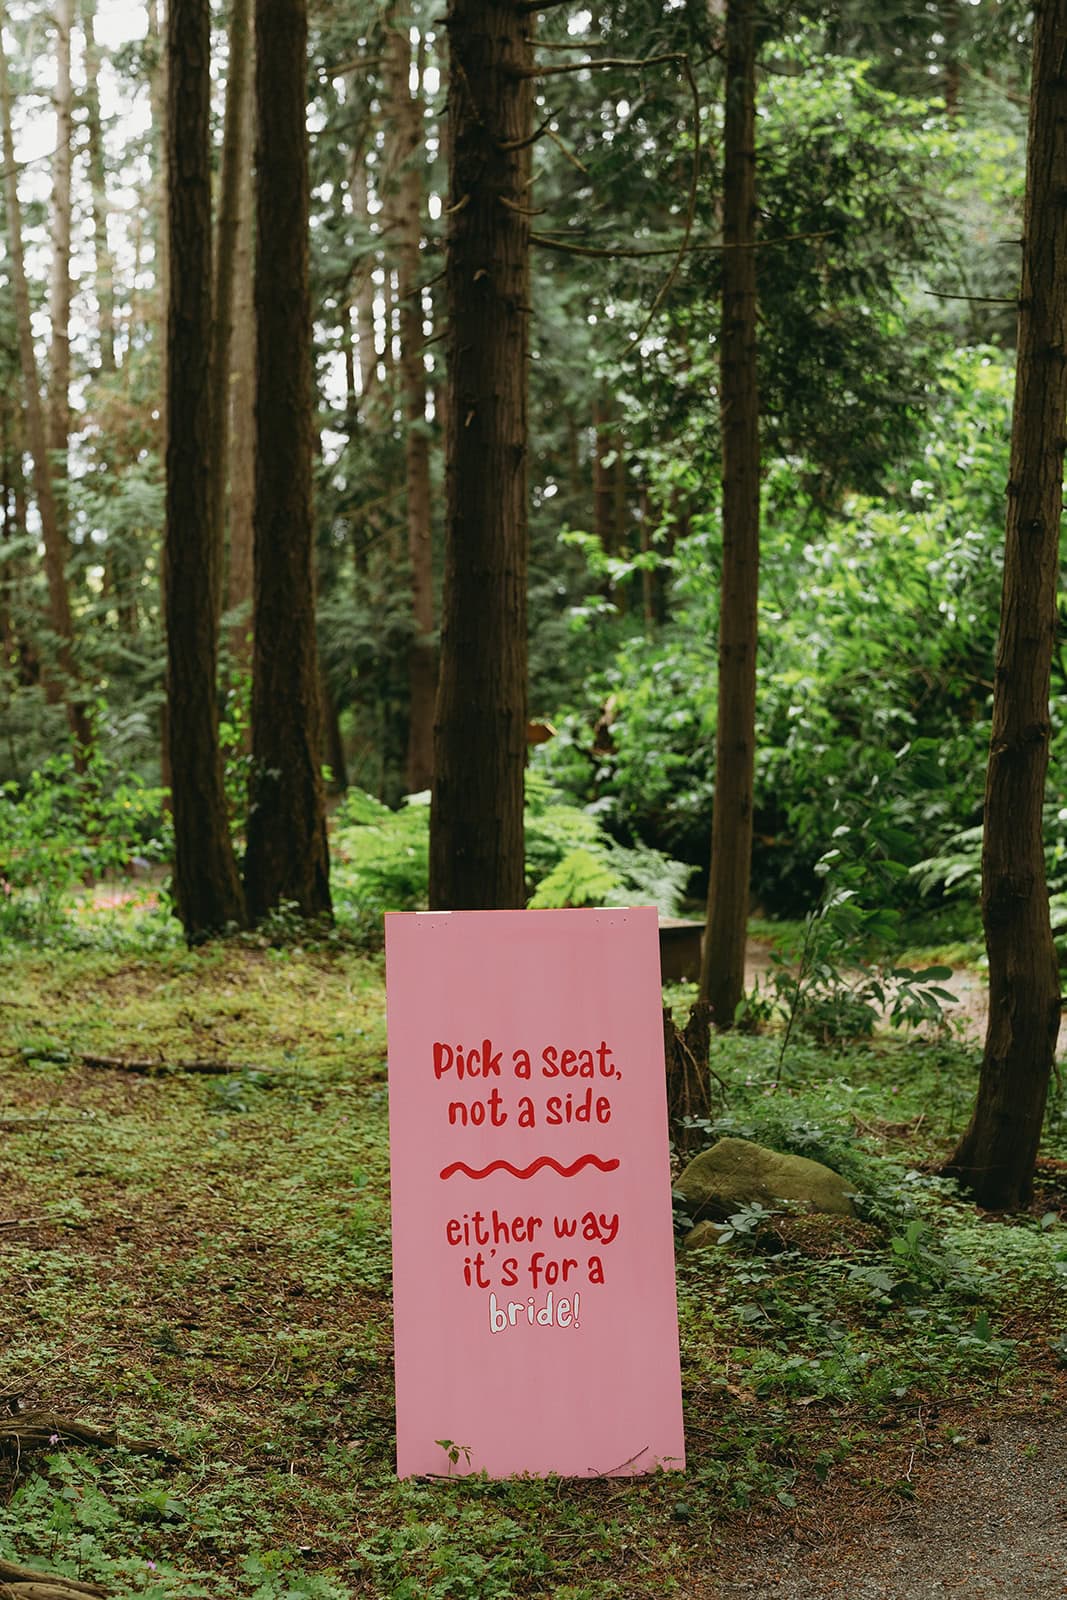 Pick a seat,
not a side
either way
it's for a
bride!